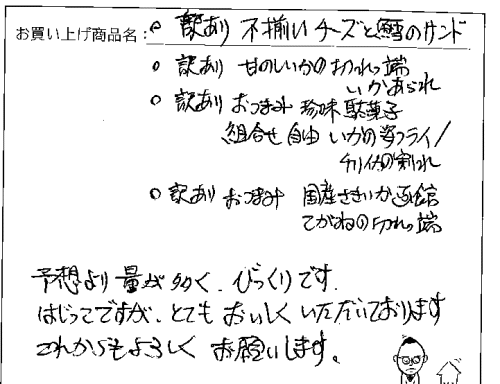 お買い上げ商品名：○ 訳あり 不揃い チーズと鱈のサンド
○ 訳あり 甘のしいかの切れっ端
いかあられ
○ 訳あり おつまみ 珍味 駄菓子
組合せ 自由 いかの姿フライ/
チリイカの割れ
○ 訳あり おつまみ 国産さきいか 函館
こがねの切れっ端
予想より 量が 多く、びっくりです。
はじめてですが、とても おいしく いただいております
これからもよろしく お願いします。